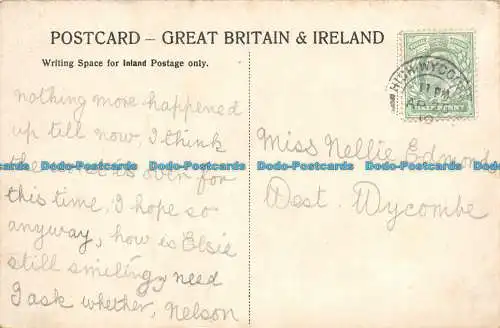 POSTCARD – GREAT BRITAIN & IRELAND
Writing Space for Inland Postage only.
nothing more happened
up till now, I think
the is over for
this time, I hope so
anyway, how is Elsie
still smiling, need
I ask whether, Nelson
HIGH WYCOMBE
11 PM
HALFPENNY
Miss Nellie Edmonds
West. Wycombe
Dodo-Postcards Dodo-Postcards Dodo-Postcards Dodo-Postcards Dodo-Postcards